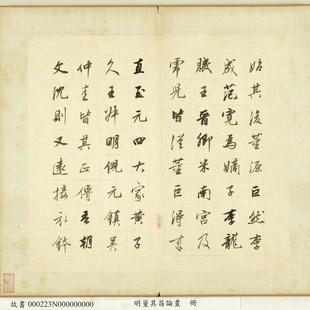 始其後董源巨然李
成范寬為嫡子李龍
眠王晉卿米南宮及
虎兒皆從董巨得來
直至元四大家黃子
久王叔明倪元鎮吳
仲圭皆其正傳吾朝
文沈則又遠接衣鉢
故書 000223N000000000 明董其昌論畫 冊